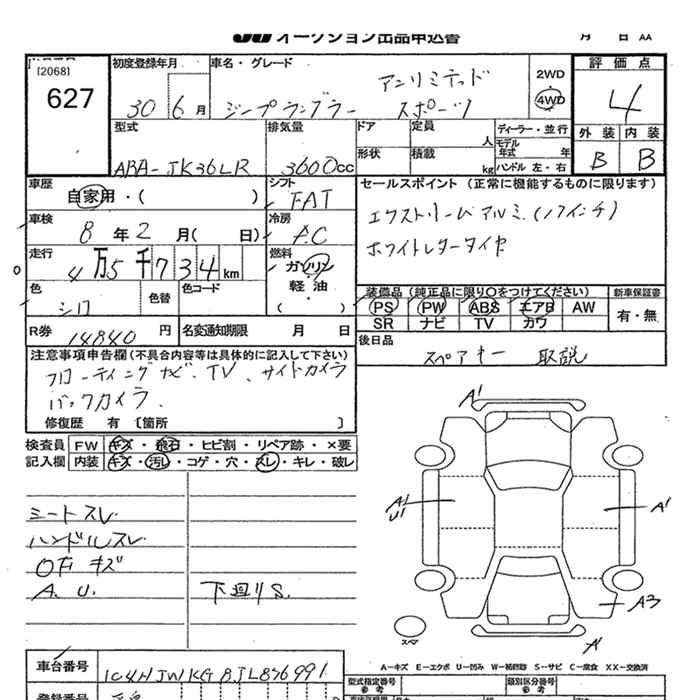 JU オークション出品申込書 月 日 AA
[2068]
627
初度登録年月
30 6 月
車名・グレード
アンリミテッド
ジープラングラー スポーツ
2WD
4WD
評価点
4
外装 内装
B B
型式
ABA-JK36LR
排気量
3600cc
ドア 定員 人
形状 積載 kg
ディーラー・並行
モデル年式 年
ハンドル 左・右
車歴
自家用・( )
シフト
FAT
セールスポイント (正常に機能するものに限ります)
エクストリームアルミ(17インチ)
ホワイトレタータイヤ
車検
8 年 2 月( 日)
冷房
AC
走行
4万5千734km
燃料
ガソリン
軽・油
( )
色
シロ
色替
色コード
装備品(純正品に限り○をつけてください) 新車保証書
PS PW ABS エアB AW
SR ナビ TV カワ
有・無
R券 14840 円 名変通知期限 月 日
後日品
スペアキー 取説
注意事項申告欄(不具合内容等は具体的に記入して下さい)
フローティングナビ. TV. サイドカメラ
バックカメラ.
修復歴 有 〔箇所 〕
検査員 FW キズ・飛石・ヒビ割・リペア跡・×要
記入欄 内装 キズ・汚レ・コゲ・穴・スレ・キレ・破レ
シートスレ
ハンドルスレ
OFキズ
A. U. 下回りS.
A1
A1
U1
A1
A3
A1
スペア
A-キズ E-エクボ U-凹ミ W-補修跡 S-サビ C-腐食 XX-交換済
車台番号
1C4HJWKG8JL876991
型式指定番号
参考
類別区分番号
参考
登録番号